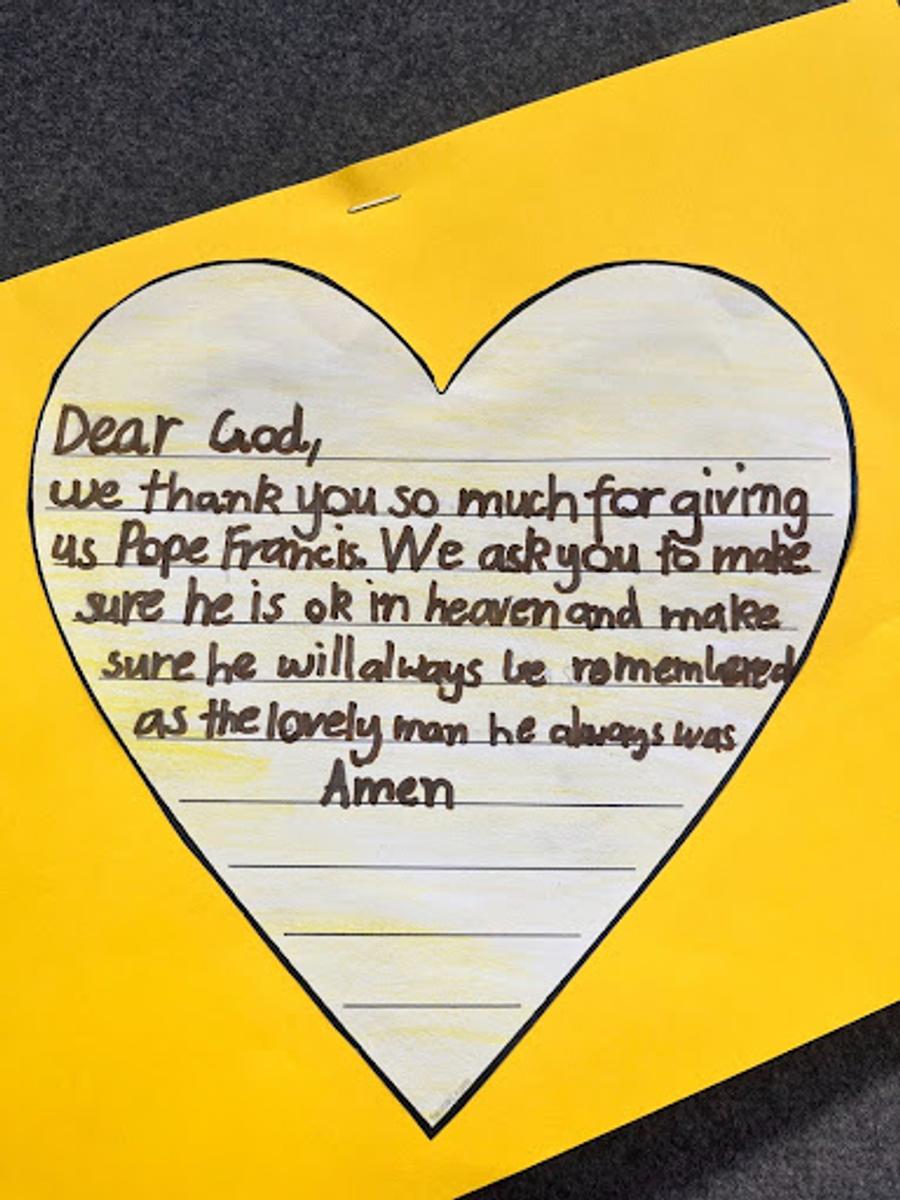 Dear God,
we thank you so much for giving
us Pope Francis. We ask you to make
sure he is ok in heaven and make
sure he will always be romembered
as the lovely man he always was
Amen